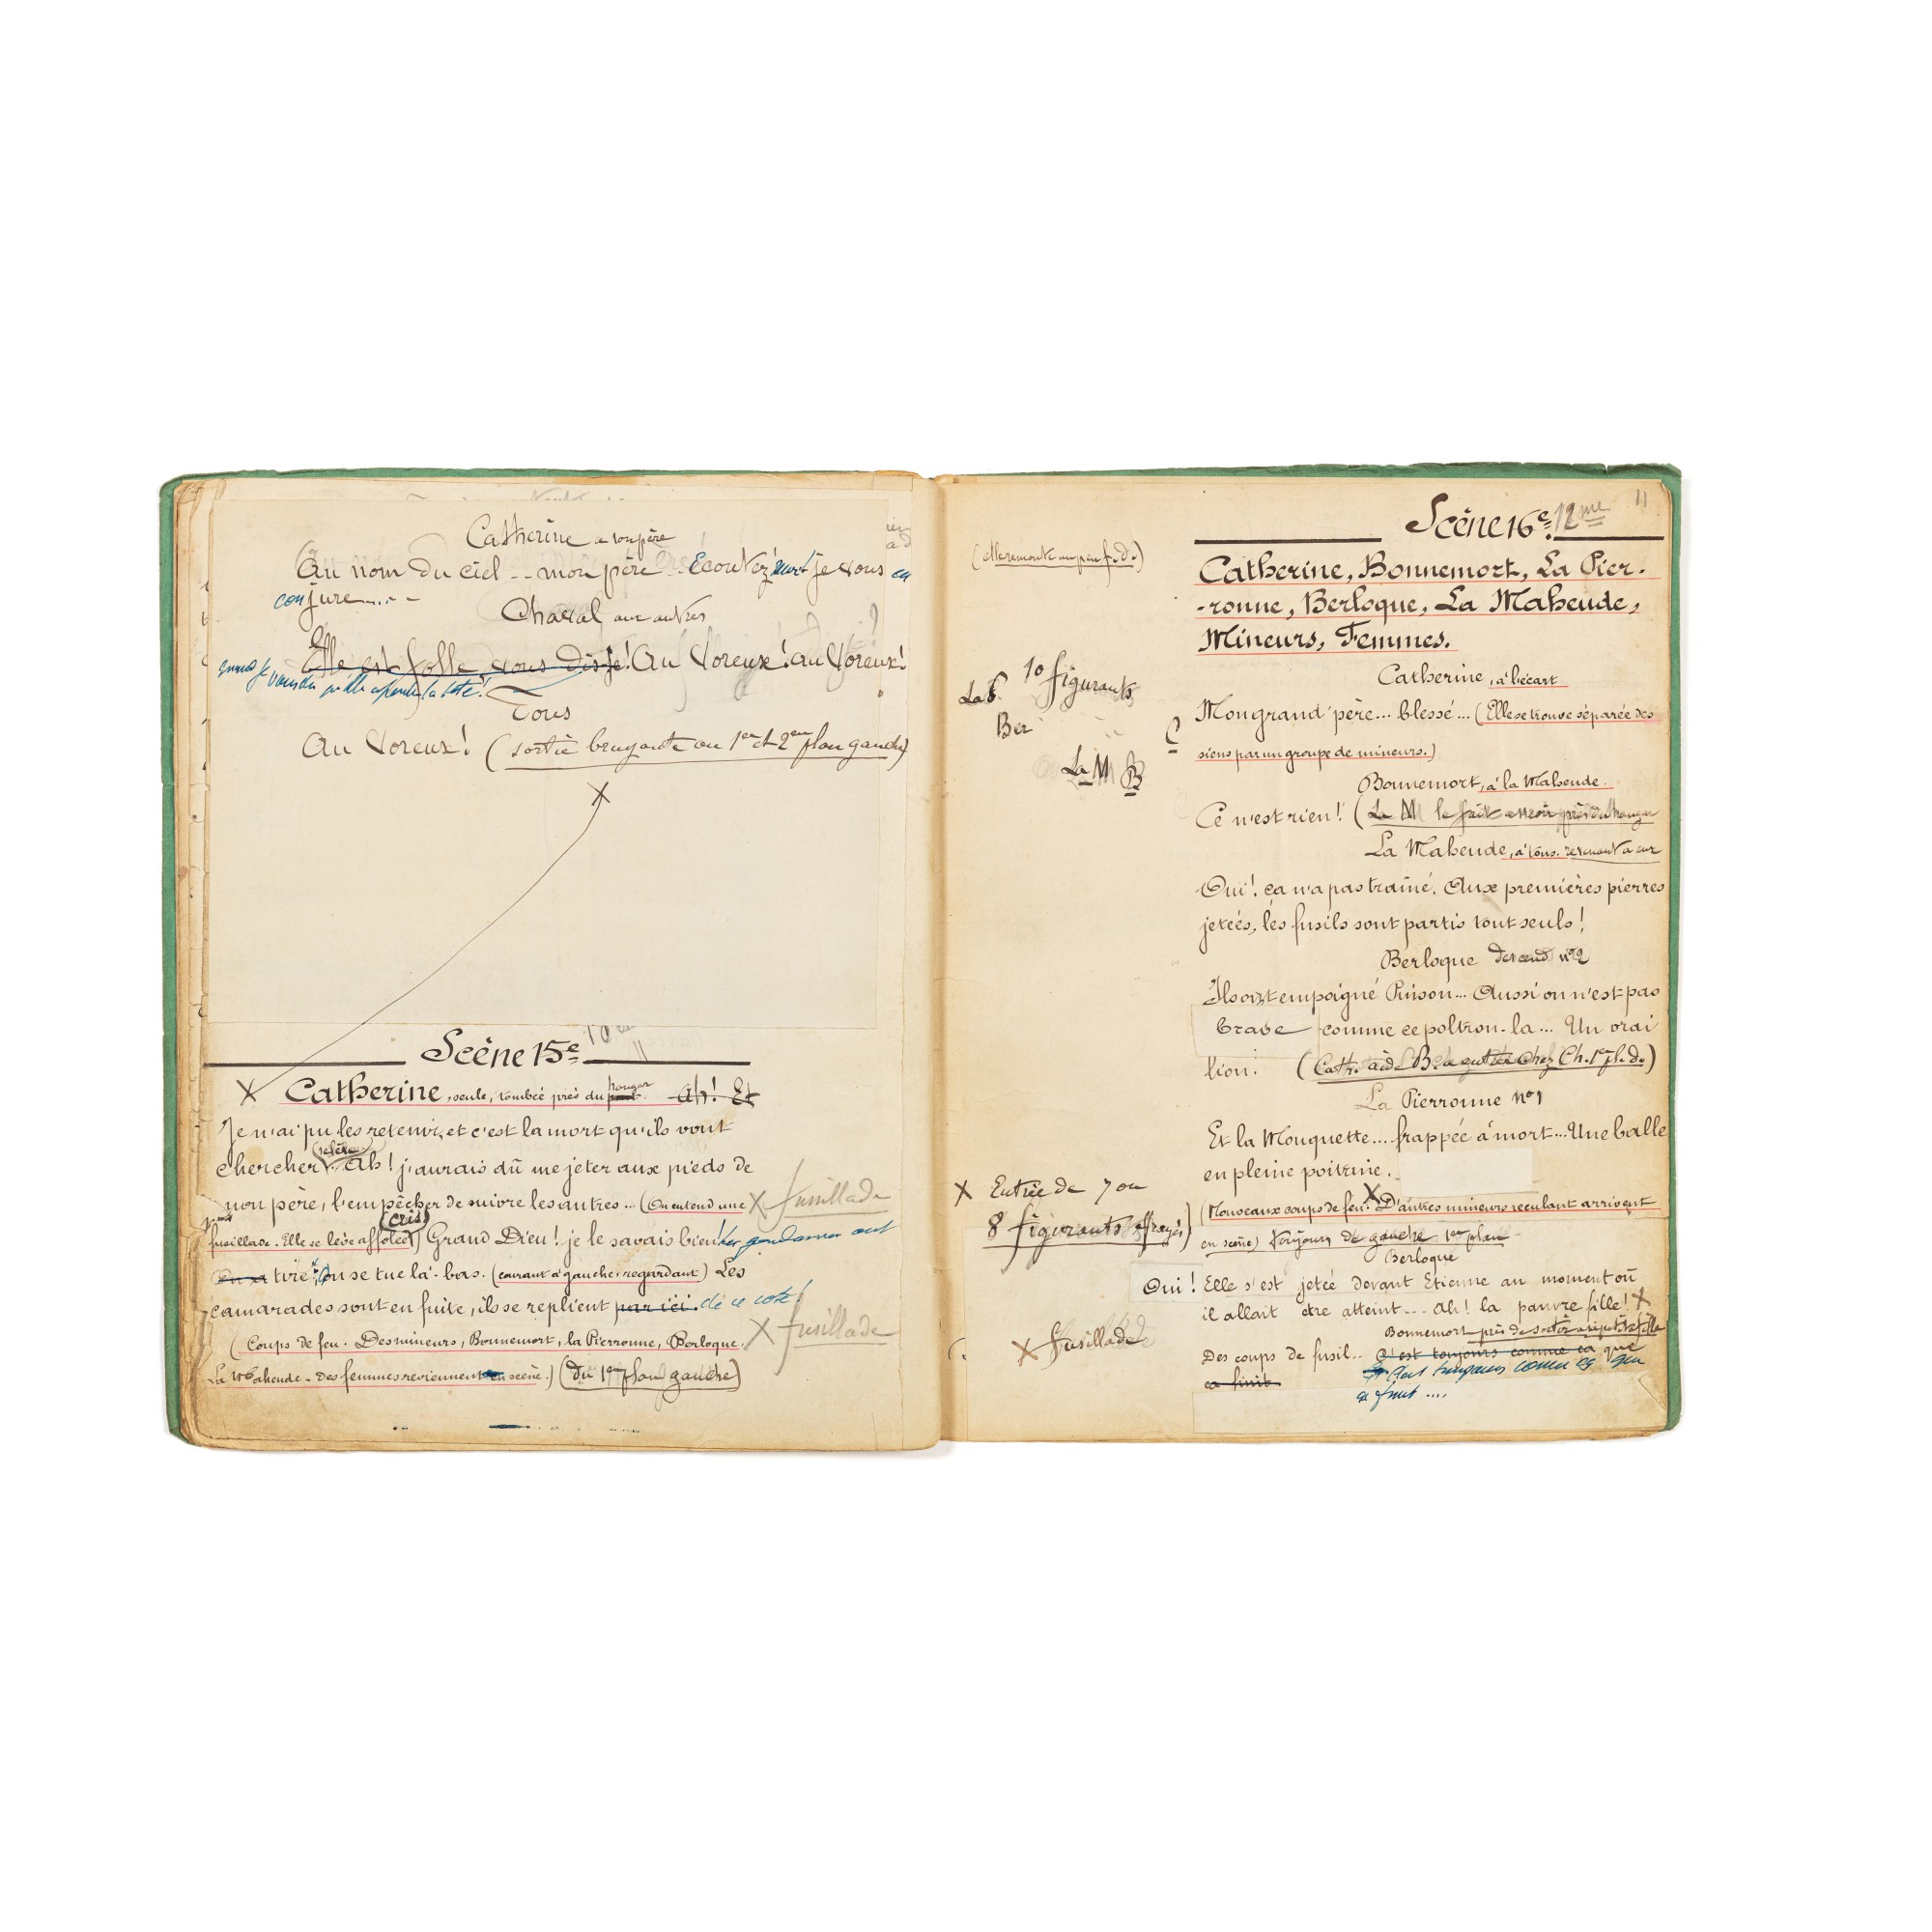 Catherine a son père
Au nom du ciel -- mon père .. Ecoutez moi je vous en
conjure .... - -
Chaval aux autres
Elle est folle vous dis-je! Au Voreux! au Voreux!
quand je vous dis qu'elle a perdu la tête!
Tous
Au Voreux! (sortie bruyante au 1er et 2em plan gauche)
X
Scène 15e
11
X Catherine, seule, tombée près du pont hangar Ah! Et
Je n'ai pu les retenir, et c'est la mort qu'ils vont
chercher .. Ah! j'aurais dû me jeter aux pieds de
mon père, l'empêcher de suivre les autres... (On entend une X fusillade
fusillade. Elle se lève affolée) (cris) Grand Dieu! je le savais bien! les gendarmes ont
On a tiré! On se tue là-bas. (courant à gauche, regardant) Les
camarades sont en fuite, ils se replient par ici. de ce coté!
X fusillade
(Coups de feu. Des mineurs, Bonnemort, la Pierronne, Berloque,
La Maheude - des femmes reviennent en scène.) (du 1er plan gauche)
11
Scène 16e 12me
(elle remonte un peu f.d.)
Catherine, Bonnemort, La Pier-
-ronne, Berloque, La Maheude,
Mineurs, Femmes.
Catherine, à l'écart
10 figurants
La P.
Ber
C
La M B
Mon grand'père... blessé... (Elle se trouve séparée des
siens par un groupe de mineurs.)
Bonnemort, à la Maheude.
Ce n'est rien! (La M le fait asseoir près du hangar
La Maheude, à tous, revenant a eux
Oui! ça n'a pas traîné. Aux premières pierres
jetées, les fusils sont partis tout seuls!
Berloque descend no 2
Ils ont empoigné Suison... Aussi on n'est pas
brave comme ce poltron-là... Un vrai
lion. (Cath. aide B. a entrer chez Ch. 1er pl. d.)
La Pierronne no 1
Et la Mouquette.... frappée à mort... Une balle
en pleine poitrine.
X Entrée de 7 ou
8 figurants effrayés)
(Nouveaux coups de feu. X D'autres mineurs reculant arrivent
en scène) toujours de gauche 1er plan
Berloque
Oui! Elle s'est jetée devant Etienne au moment où
il allait être atteint... Ah! la pauvre fille! X
X fusillade
Bonnemort près de
Des coups de fusil.. C'est toujours comme ca que
ca finit.
C'est toujours comme ca que
ca finit ....